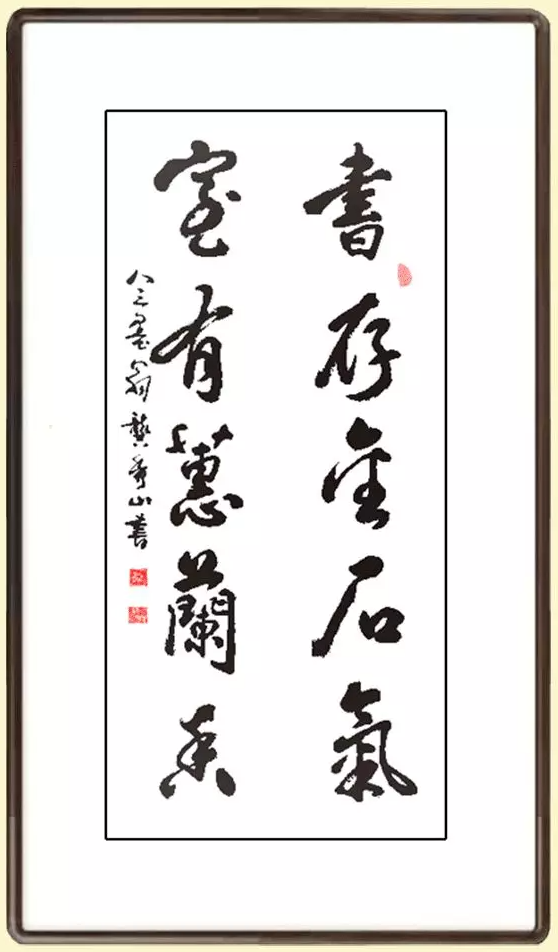 書存金石氣
室有蕙蘭香
八三墨翁龔秀山書